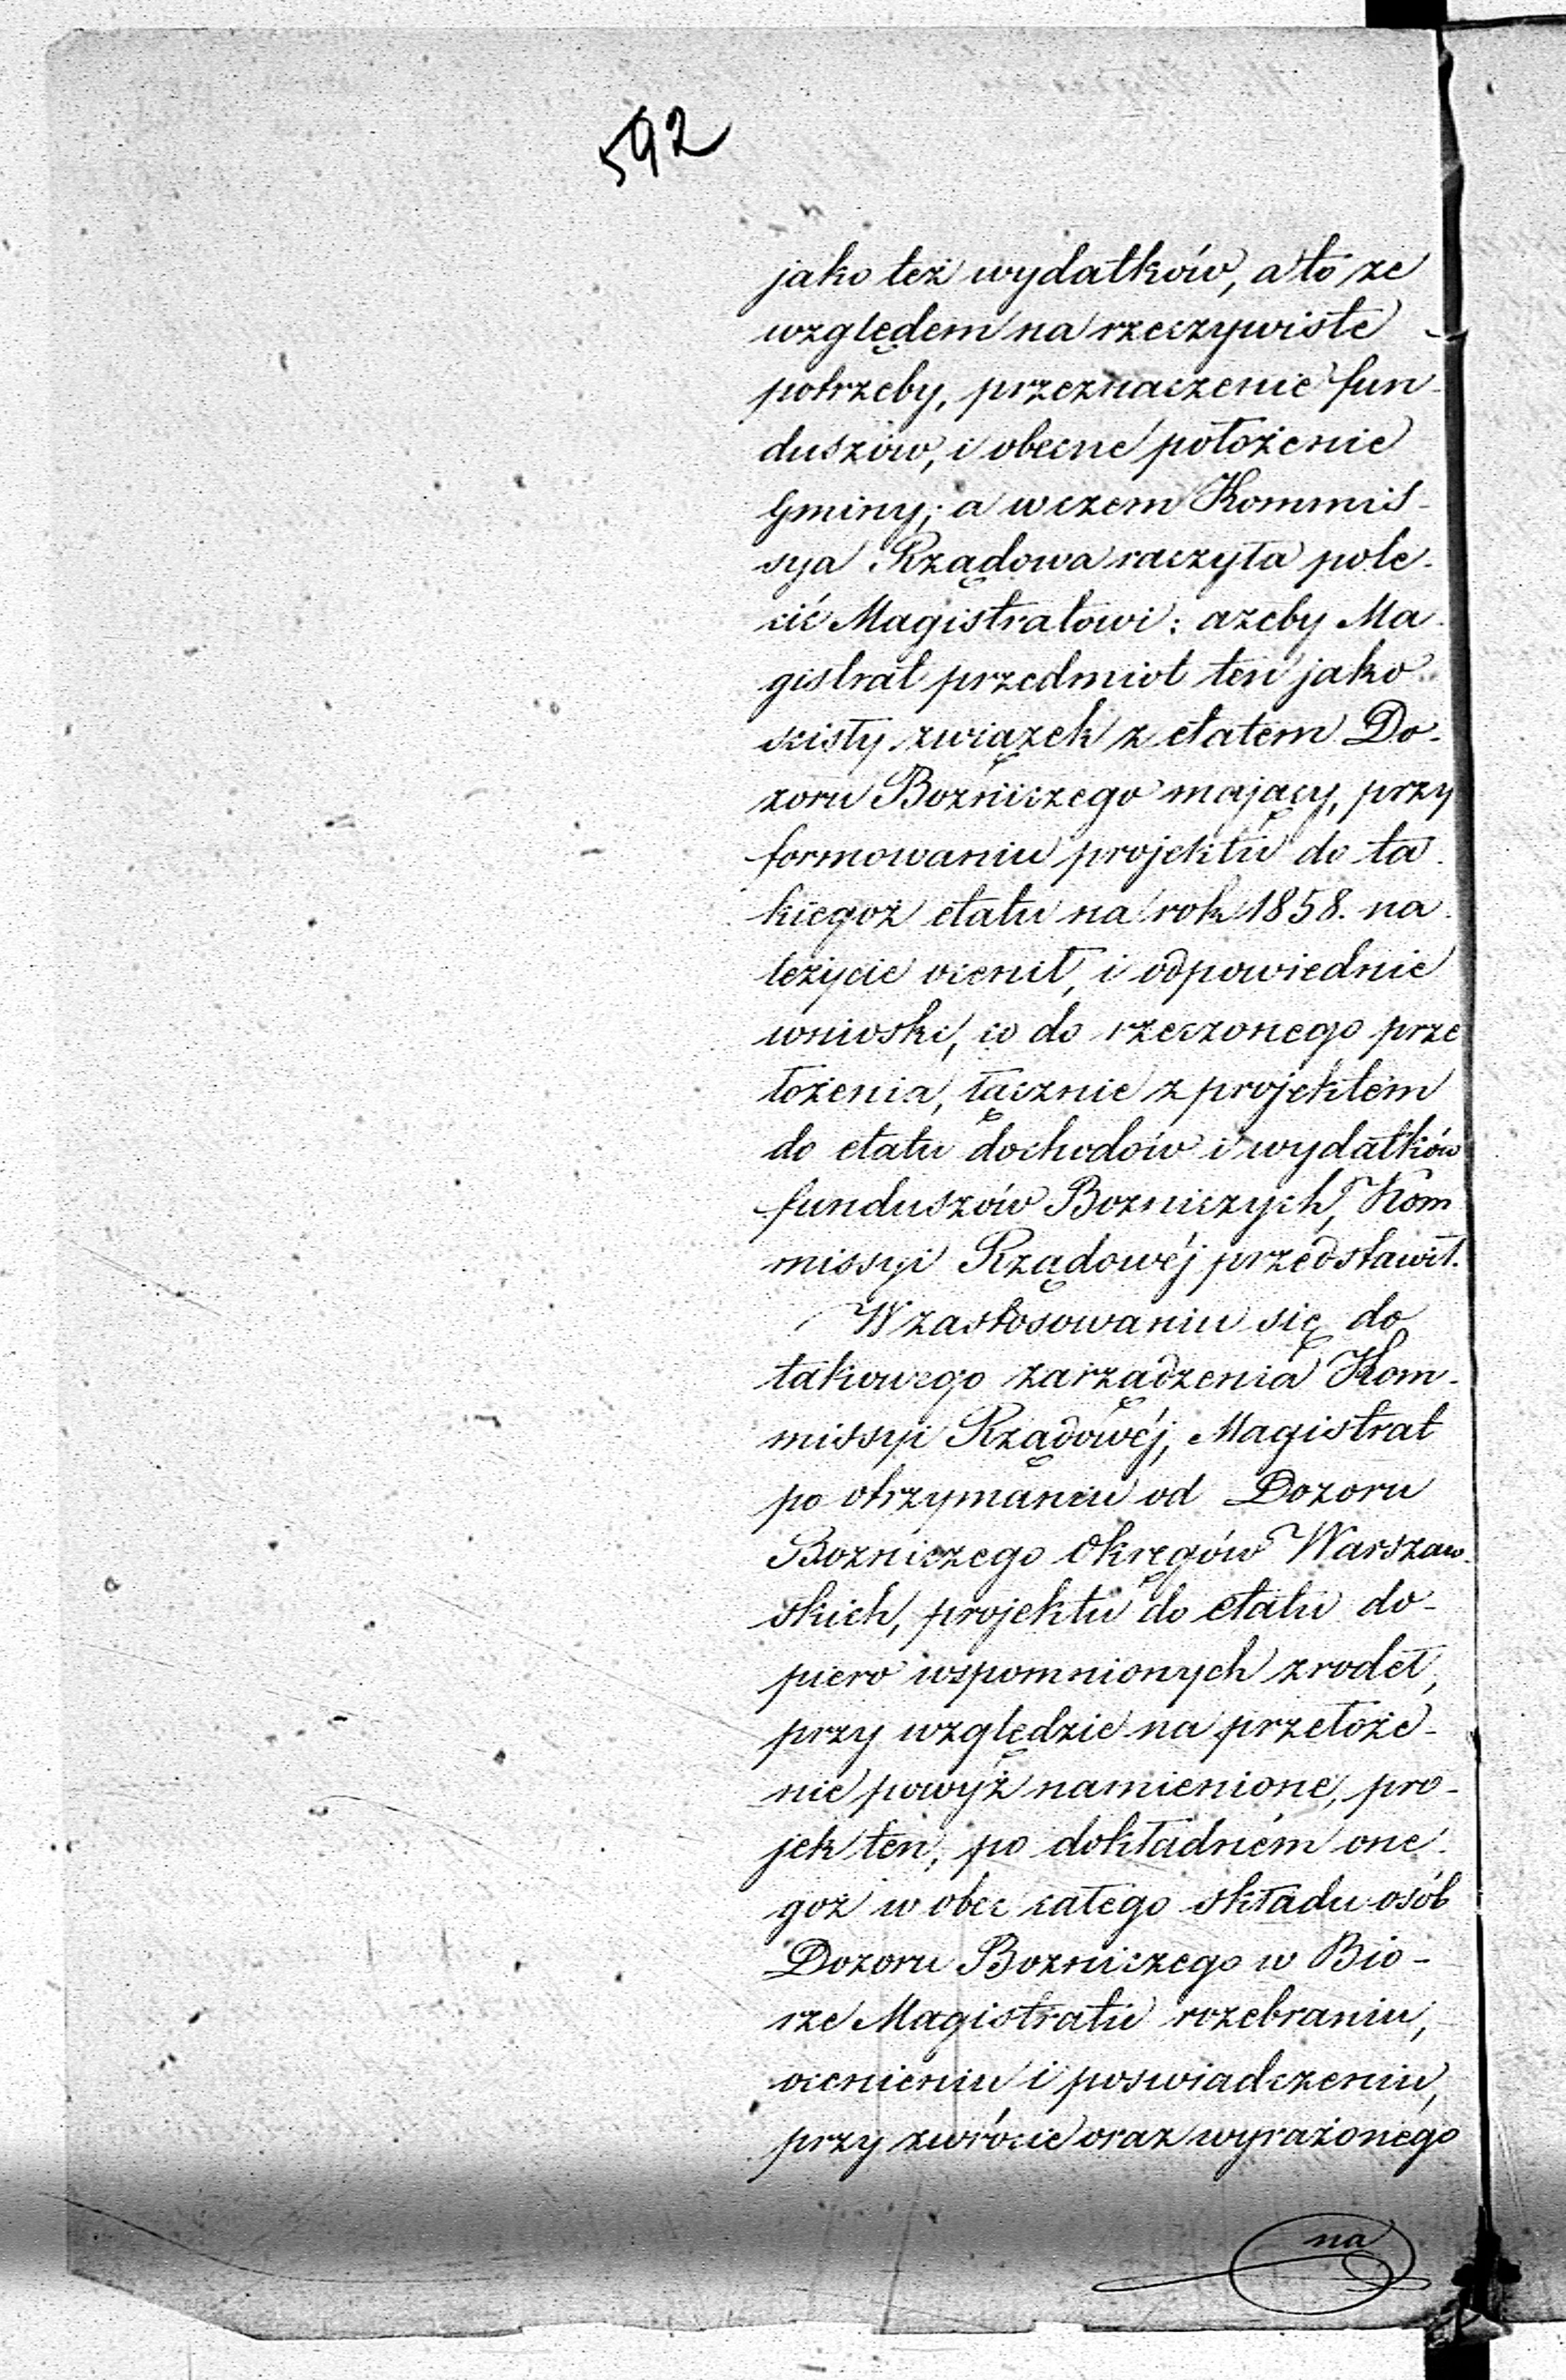 592
jako też wydatków, a to ze
względem na rzeczywiste
potrzeby, przeznaczenie fun-
duszów, i obecne położenie
Gminy; a wczem Kommis-
sya Rządowa raczyła pole-
cić Magistratowi: azeby Ma-
gistrat przedmiot ten jako
scisły związek z etatem Do-
zoru Bożniczego mający, przy
formowaniu projektu do ta-
kiegoż etatu na rok 1858. na-
leżycie ocenił, i odpowiednie
wnioski, co do rzeczonego prze
łożenia, łącznie z projektem
do etatu dochodów i wydatków
funduszów Bozniczych, Kom
missyi Rządowéj przedstawił.
W zastosowaniu się do
takowego zarządzenia Kom-
missyi Rządowéj, Magistrat
po otrzymaniu od Dozoru
Bozniczego Okręgów Warszaw-
skich, projektu do etatu do-
piero wspomnionych zrodeł,
przy względzie na przełoże-
nie powyż namienione, pro-
jekt ten, po dokładném one-
goż w obec całego składu osób
Dozoru Bozniczego w Bio-
rze Magistratu rozebraniu,
ocenieniu i poswiadczeniu,
przy zwrócie oraz wyrażonego
na